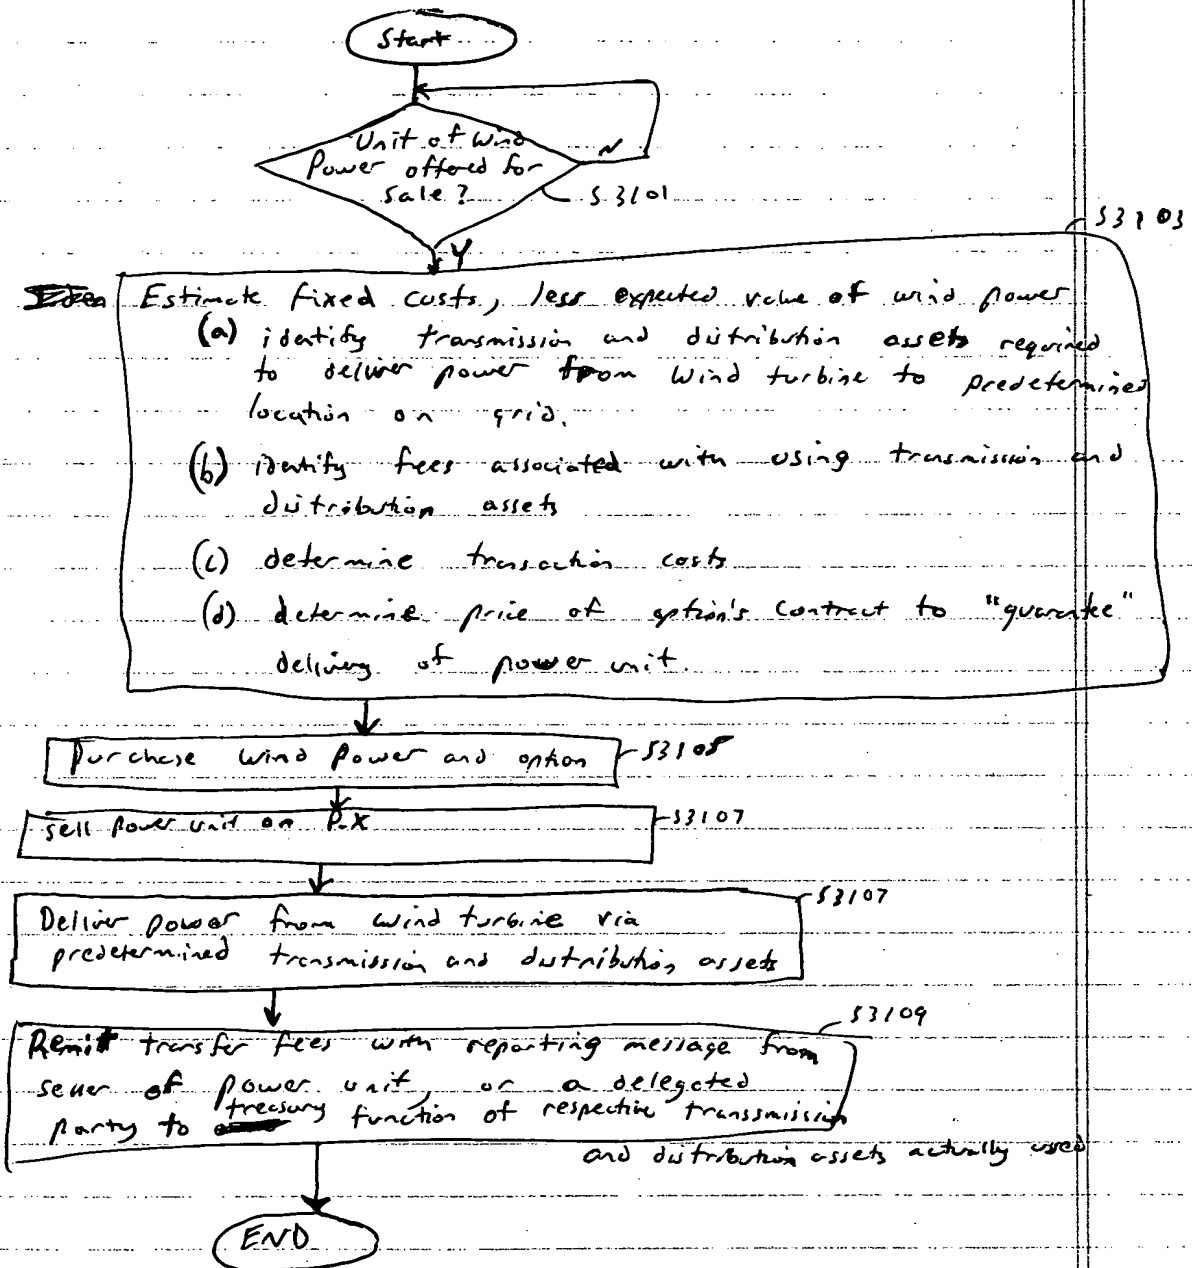 Start
Unit of Wind
Power offered for
sale?
N
S3101
Y
S3103
Estimate fixed costs, less expected value of wind power
(a) identify transmission and distribution assets required
to deliver power from wind turbine to predetermined
location on grid.
(b) identify fees associated with using transmission and
distribution assets
(c) determine transaction costs
(d) determine price of option's contract to "guarantee"
delivery of power unit.
Purchase wind power and option
S3105
sell power unit on P.X
S3107
Deliver power from wind turbine via
predetermined transmission and distribution assets
S3107
Remit transfer fees with reporting message from
seller of power unit, or a delegated
party to treasury function of respective transsmission
and distribution assets actually used
S3109
END